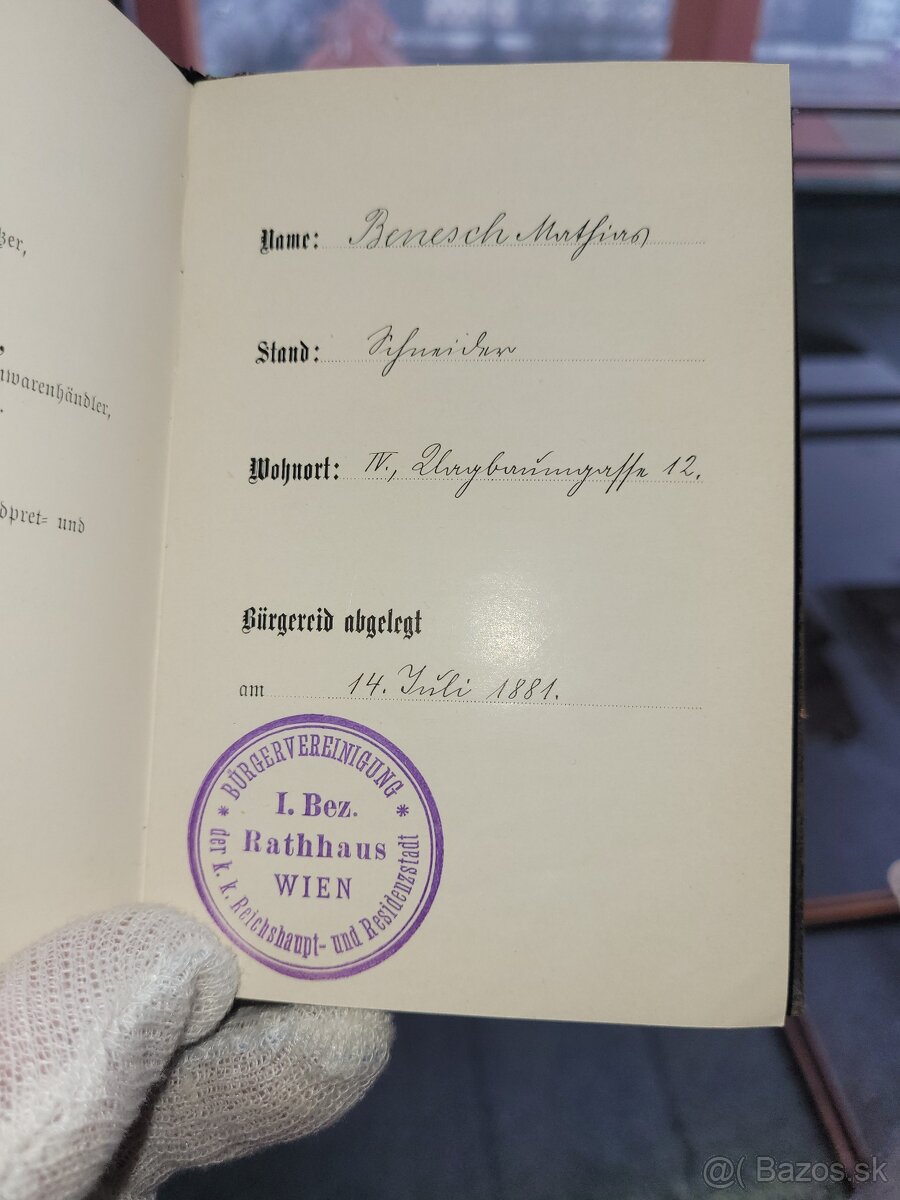 ßer,
nwarenhändler,
dpret- und
Name: Benesch Mathias
Stand: Schneider
Wohnort: IV., Klagbaumgasse 12.
Bürgereid abgelegt
am 14. Juli 1881.
* BÜRGERVEREINIGUNG *
I. Bez.
Rathhaus
WIEN
der k. k. Reichshaupt- und Residenzstadt
@( Bazos.sk